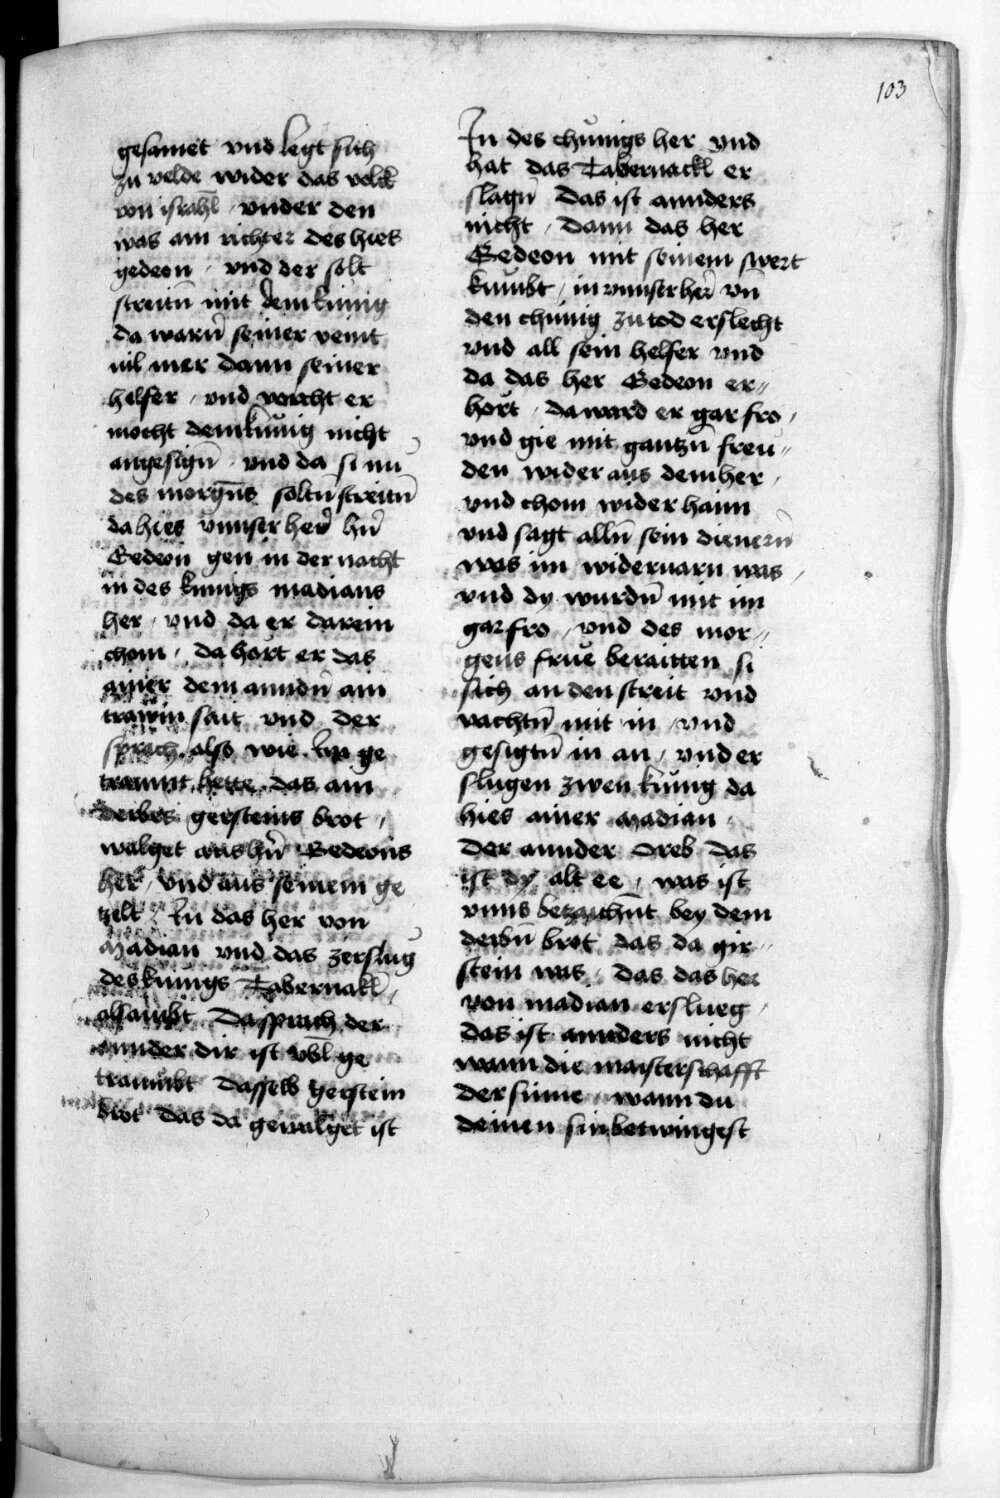 103
gesamet vnd legt sich
zu velde wider das volk
von israhl̄ / vnder den
was ain richter des hies
gedeon / vnd der solt
streitn̄ mit dem kunig
da warn̄ seiner veint
vil mer dann seiner
helfer / vnd vorcht er
mocht dem kunig nicht
angesign̄ / vnd da si nu
des morgn̄s soltn̄ streitn̄
da hies vnnser her̄ hn̄
Gedeon gen in der nacht
in des kunigs madians
her / vnd da er darein
chom / da hort er das
ainer dem anndn̄ ain
trawm sait vnd der
sprach also wie im ge
trawmt hette das ain
derbes gersteins brot /
walget aus hn̄ Gedeons
her / vnd aus seinem ge
zelt / In das her von
Madian vnd das zerslug
des kunigs Tabernakl̄ /
alsambt Da sprach der
annder dir ist vbl̄ ge
trawmbt dasselb gerstein
brot das da gewalget ist
In des chunigs her vnd
hat das Tabernackl er
slagn̄ Das ist annders
nicht / Dann das her
Gedeon mit seinem swert
kumbt / in vnnser her̄ vn̄
den chunig zu tod erslecht
vnd all sein helfer vnd
da das her Gedeon er〃
hort / da ward er gar fro /
vnd gie mit gantzn̄ freu〃
den wider aus dem her /
vnd chom wider haim
vnd sagt alln̄ sein dienern̄
was im widervarn was /
vnd dy wurdn̄ mit im
gar fro / vnd des mor〃
gens frue beraitten si
sich an den streit vnd
vachtn̄ mit in / vnd
gesigtn̄ in an / vnd er
slugen zwen kunig da
hies ainer Madian /
Der annder Oreb Das
ist dy alt ee / was ist
vnns betzaichn̄t bey dem
derbn̄ brot das da gir〃
stein was / Das das her
von madian erslueg /
das ist annders nicht
wann die maisterschafft
der sinne / wann du
deinen sin betwingest